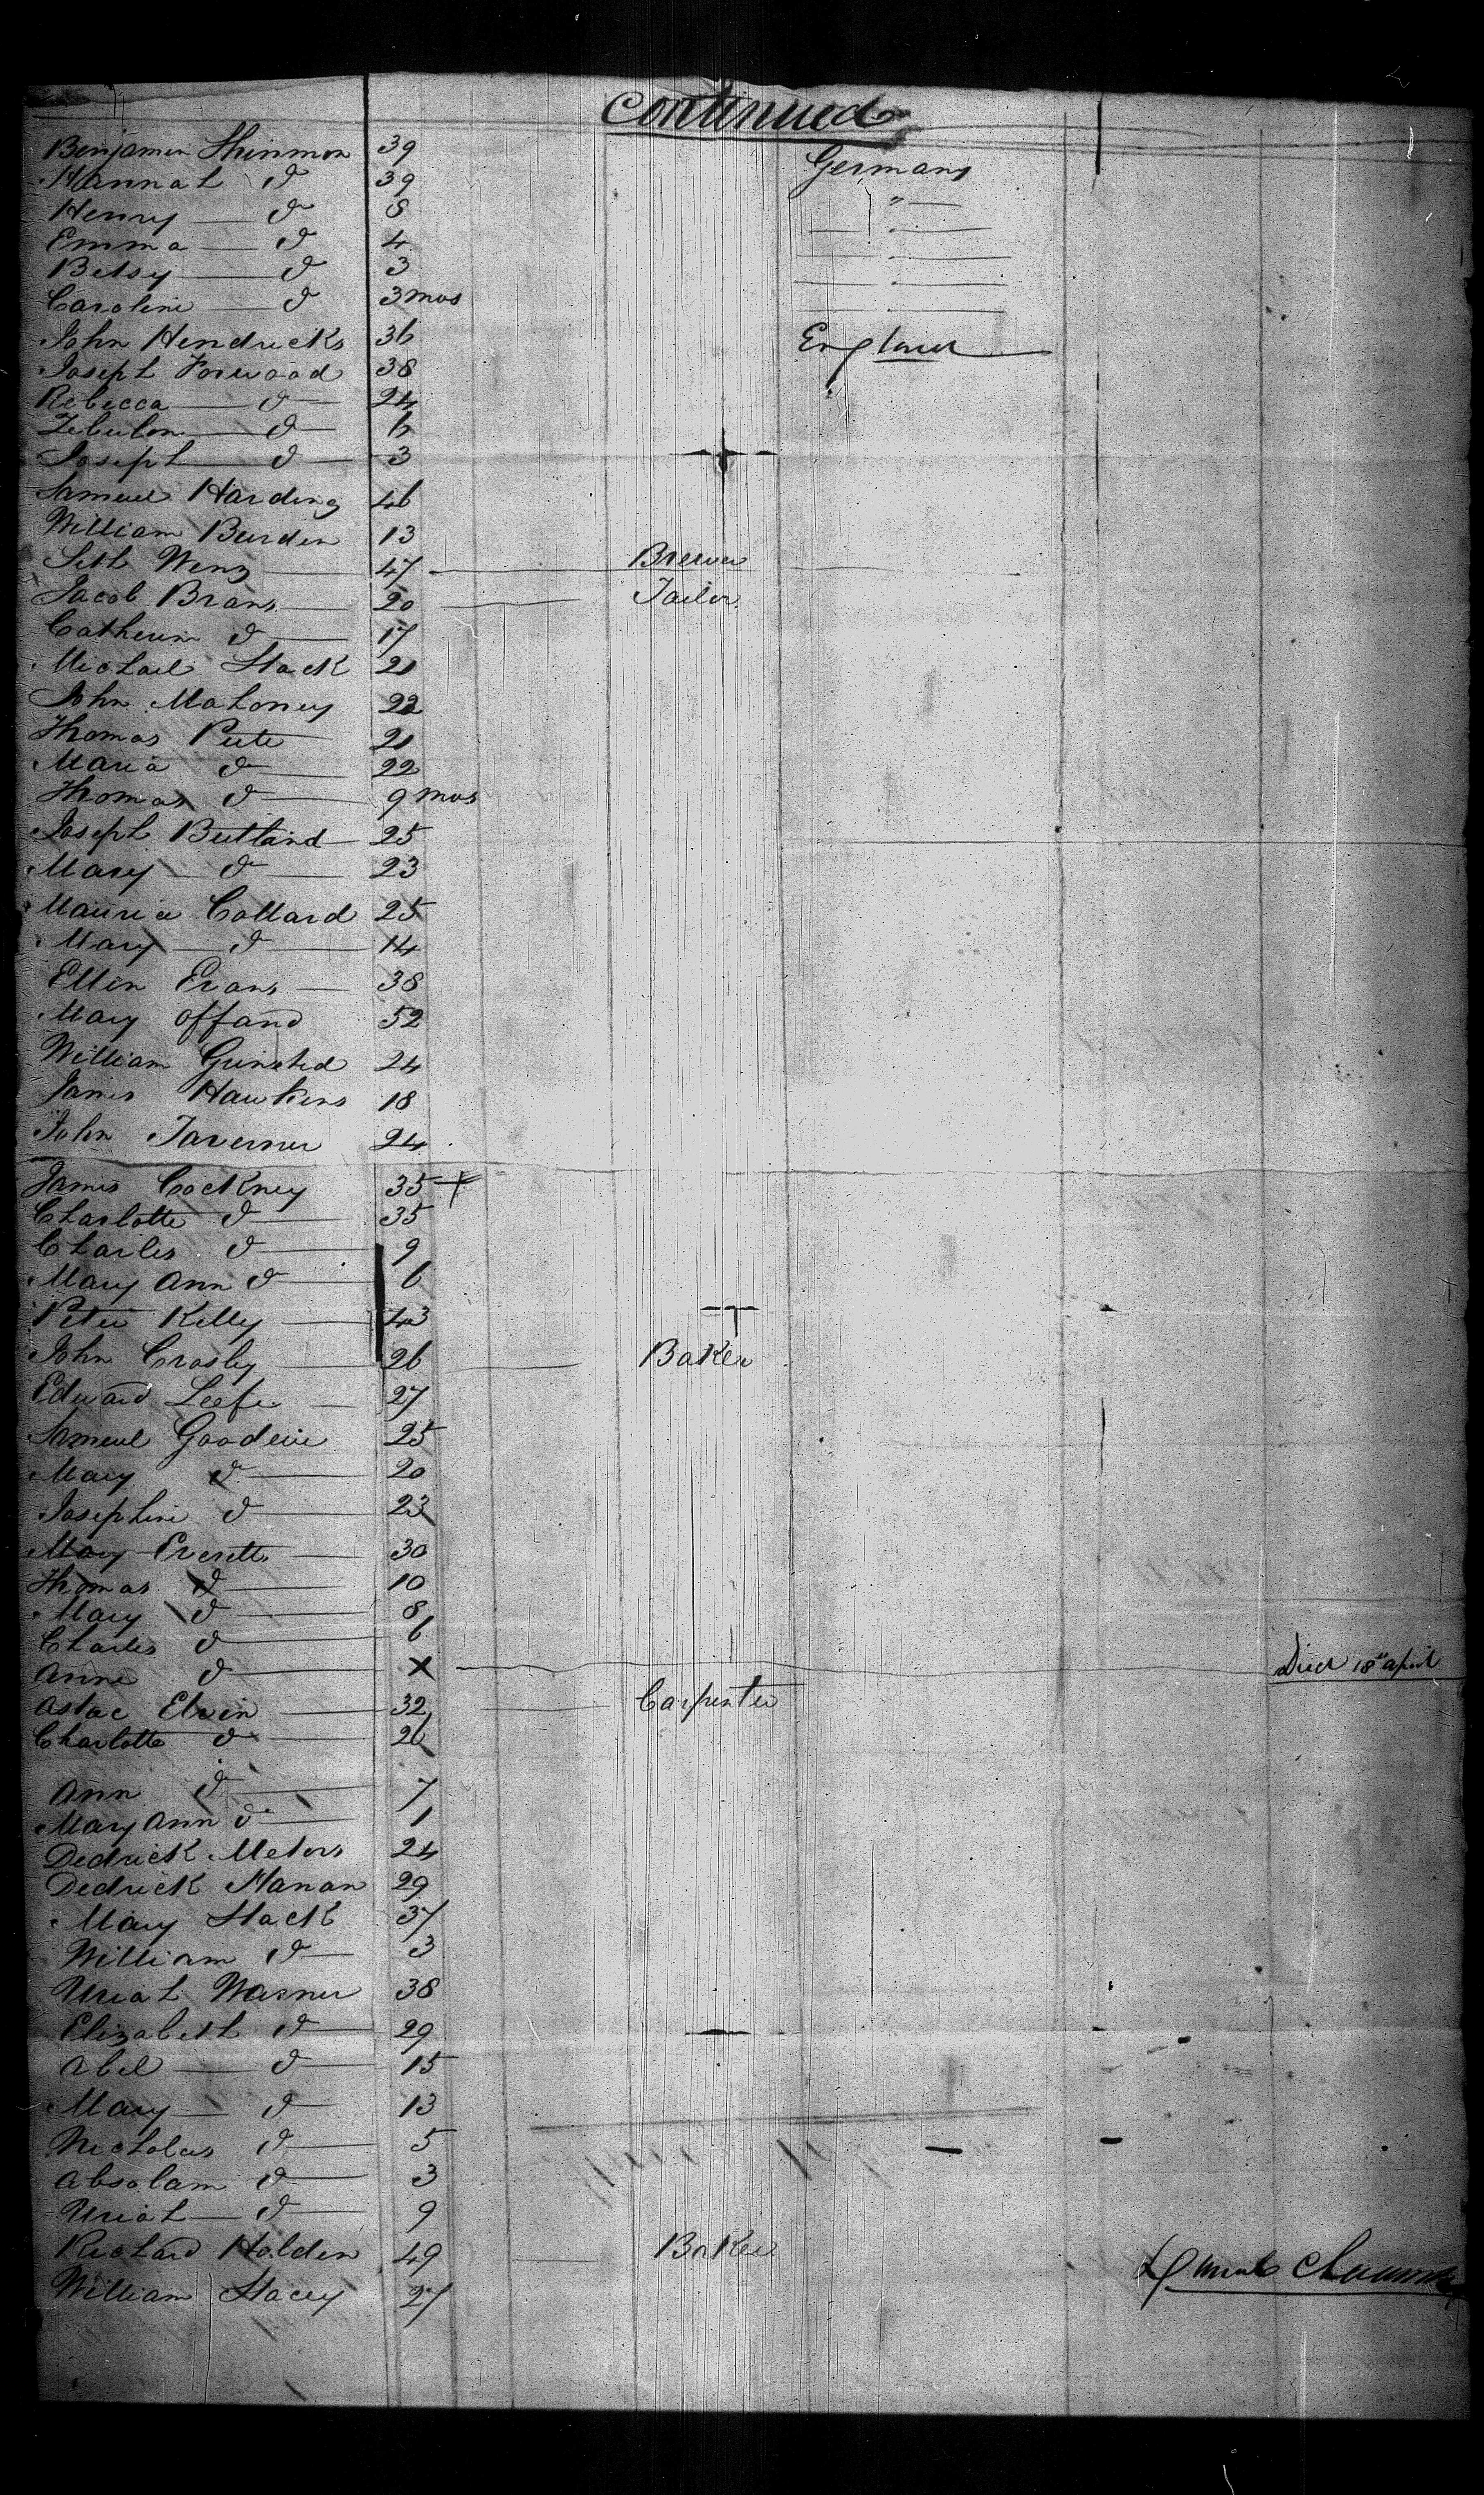 Continued
Benjamin Shinmon 39 Germany
Hannah D 39 "
Henry D 8 "
Emma D 4 "
Betsy D 3 "
Caroline D 3 mos
John Hendricks 36 England
Joseph Forwood 38
Rebecca D 24
Zebulon D 6
Joseph D 3
Samuel Harding 46
William Burden 13
Seth Wenz 47 Brewer
Jacob Brans 20 Tailor
Catherin D 17
Michael Stack 21
John Mahoney 22
Thomas Pete 21
Maria D 22
Thomas D 9 mos
Joseph Butland 25
Mary D 23
Maurice Collard 25
Mary D 14
Ellen Evans 38
Mary Offand 52
William Grinsted 24
James Hawkins 18
John Taverner 24
James Cockney 35 +
Charlotte D 35
Charles D 9
Mary Ann D 6
Peter Kelly 43
John Crosby 26 Baker
Edward Leefe 27
Samuel Goodwin 25
Mary D 20
Josephine D 23
Mary Everett 30
Thomas D 10
Mary D 8
Charles D 6
Anne D X Died 18th April
Elvin 32 Carpenter
Charlotte D 26
Ann D 7
Mary Ann D 1
Dedrick Meters 24
Dedrick Hanan 29
Mary Stack 37
William D 3
Uriah Warner 38
Elizabeth D 29
Abel D 15
Mary D 13
Nicholas D 5
Absolam D 3
Uriah D 9
Richard Holden 49 Baker
William Stacey 27